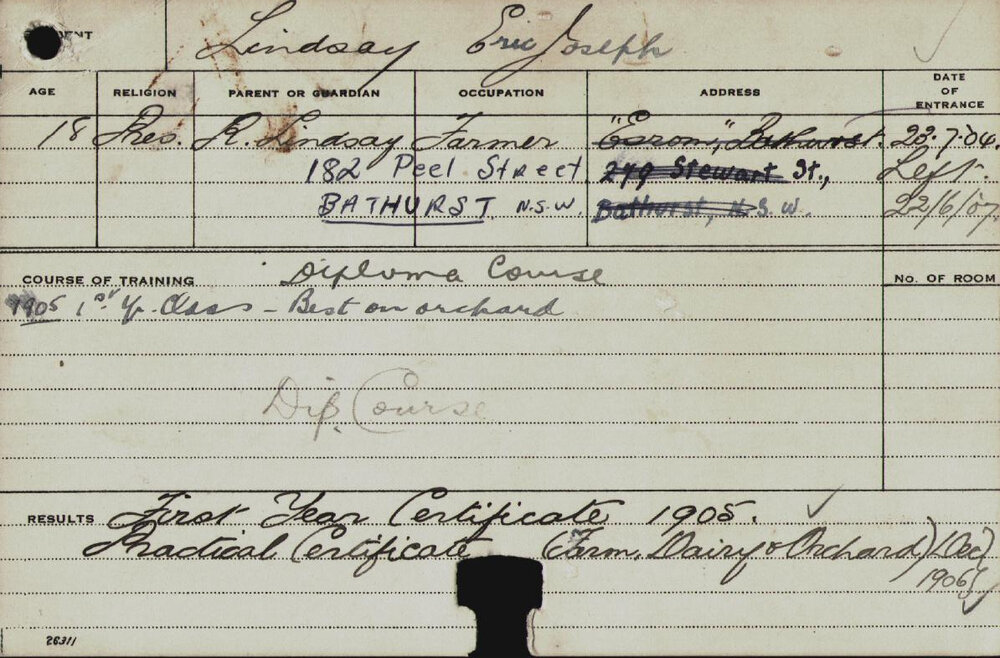 Lindsay Eric Joseph
AGE RELIGION PARENT OR GUARDIAN OCCUPATION ADDRESS DATE OF ENTRANCE
18 Pres. R. Lindsay Farmer "Esrom," Bathurst. 23.7.04.
182 Peel Street 249 Stewart St., Left.
BATHURST N.S.W. Bathurst, N.S.W. 22/6/07.
COURSE OF TRAINING Diploma Course No. OF ROOM
1905 1st Yr. Class - Best on orchard
Dip. Course
RESULTS First Year Certificate 1905.
Practical Certificate (Farm, Dairy & Orchard) Dec
1906
26311